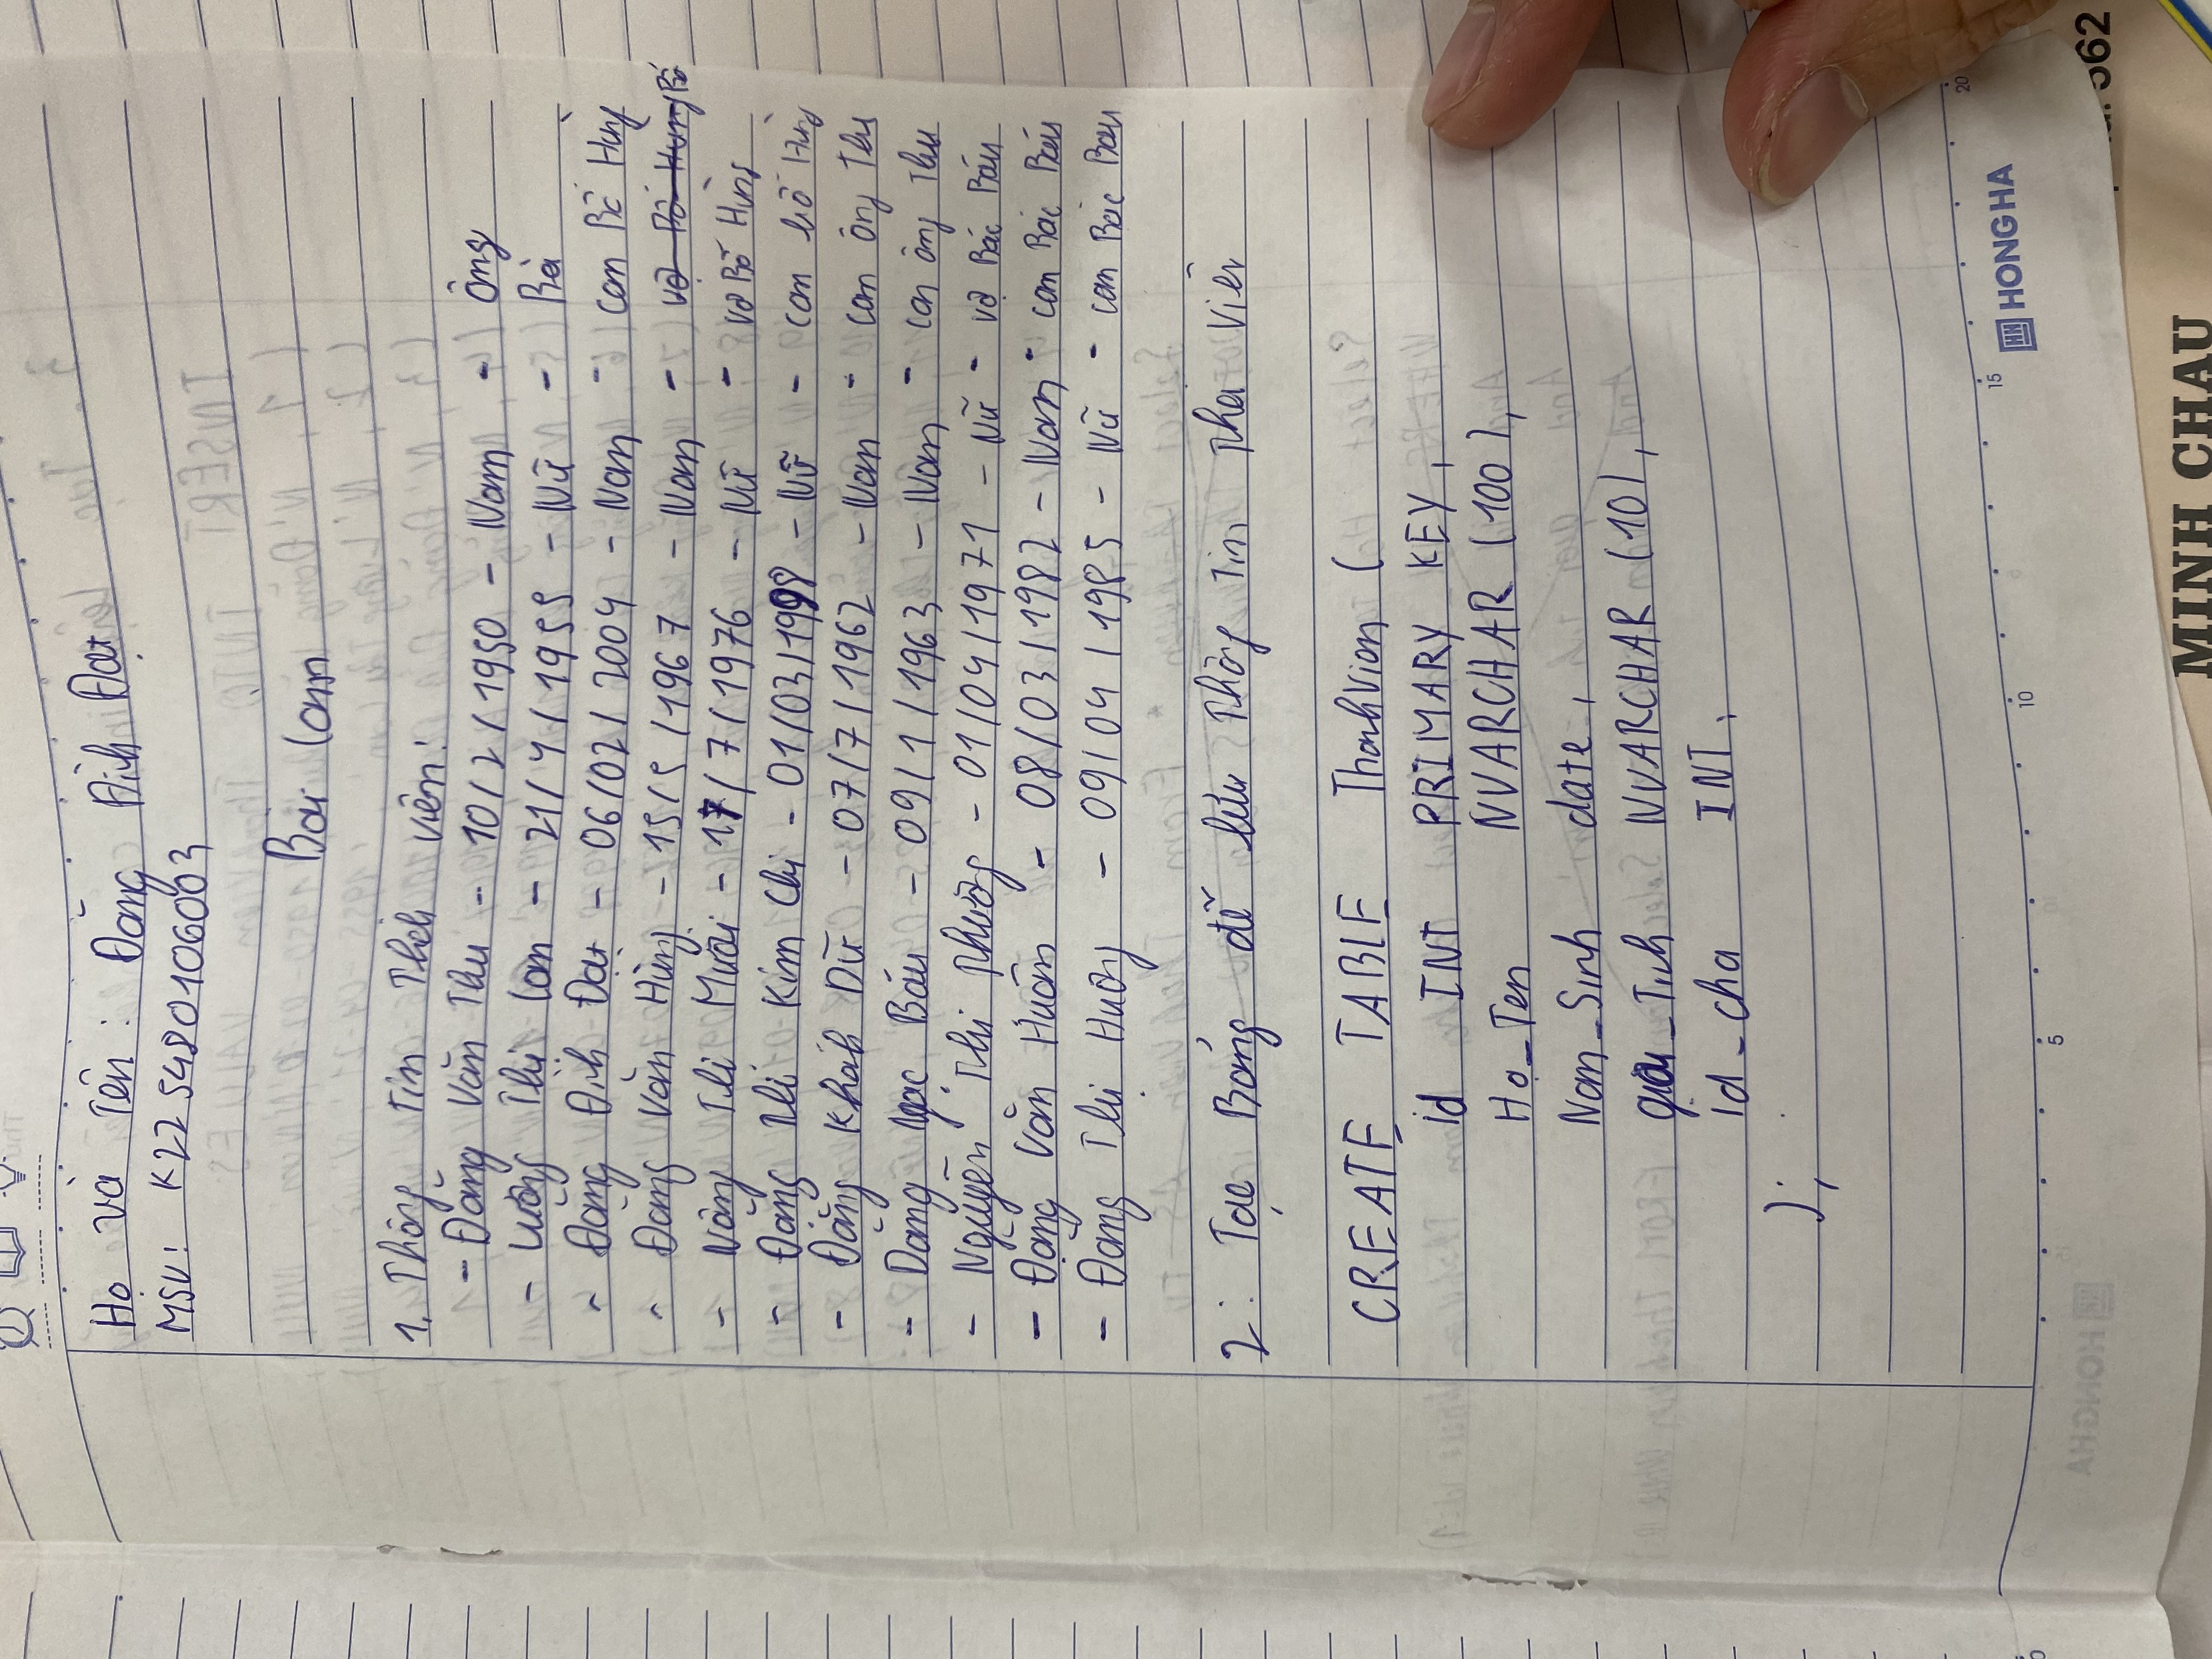 Họ và Tên: Đặng Đình Đạt
MSV: K225480106003
Bài làm
1. Thông tin Thành viên:
- Đặng Văn Thu - 10/2/1950 - Nam - Ông
- Lương Thị Lan - 21/4/1955 - Nữ - Bà
- Đặng Đình Đạt - 06/02/2004 - Nam - con Bố Hùng
- Đặng Văn Hùng - 15/5/1967 - Nam - vợ Bố Hùng Bố
- Nông Thị Mười - 17/7/1976 - Nữ - vợ Bố Hùng
- Đặng Thị Kim Chi - 01/03/1998 - Nữ - con bố Hùng
- Đặng Khánh Dư - 07/7/1962 - Nam - con ông Thu
- Đặng Ngọc Báu - 09/1/1963 - Nam - con ông Thu
- Nguyễn Thị Phương - 01/04/1971 - Nữ - vợ Bác Báu
- Đặng Văn Huôn - 08/03/1982 - Nam - con Bác Báu
- Đặng Thị Hương - 09/04/1985 - Nữ - con Bác Báu
2: Tạo Bảng để lưu Thông Tin Thành Viên
CREATE TABLE ThanhVien (
id INT PRIMARY KEY,
Ho_Ten NVARCHAR (100),
Nam_Sinh date,
gioi_Tinh NVARCHAR (10),
Id_cha INT,
);
HONGHA
5 10 15 20
MINH CHAU
562